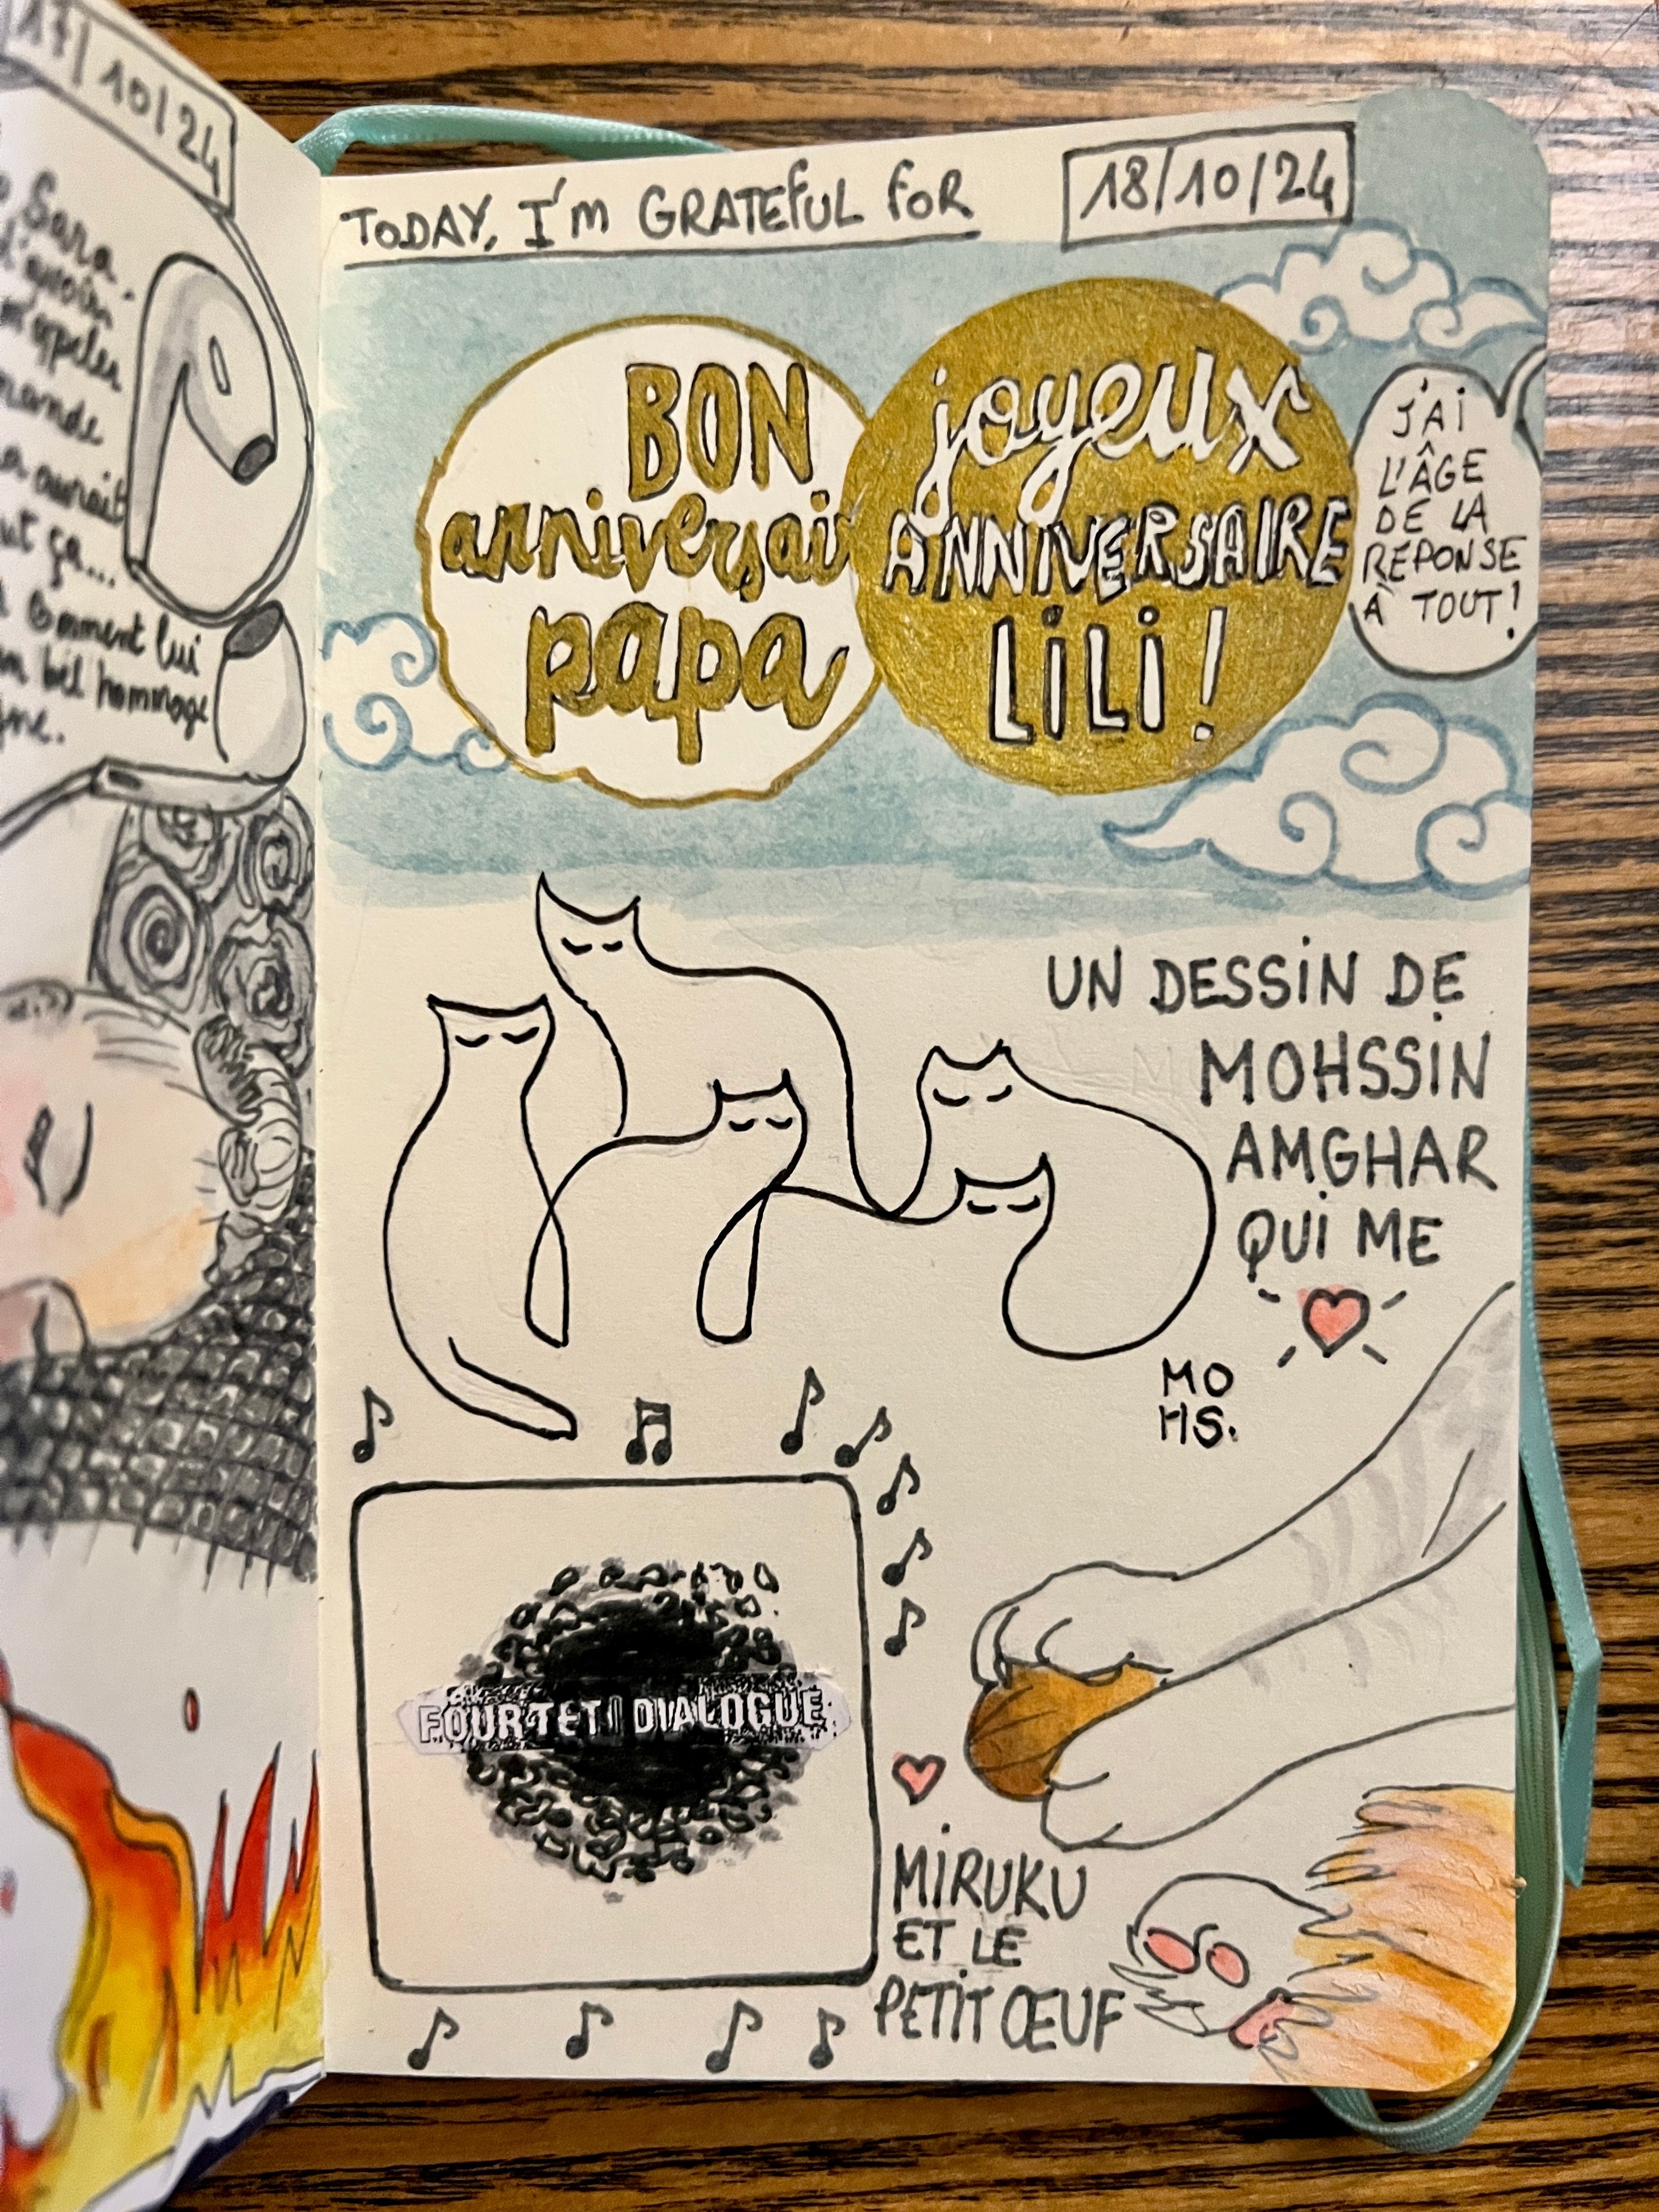 10/24
Sara
d'avoir
aurait
ut ça...
comment lui
bel hommage
TODAY, I'm GRATEFUL FOR
18/10/24
BON
anniversai
papa
joyeux
ANNIVERSAIRE
LiLi !
J'Ai
L'ÂGE
DE LA
RÉPONSE
À TOUT !
UN DESSiN DE
MOHSSiN
AMGHAR
QUi ME
MO
HS.
FOUR TET | DIALOGUE
MiRUKU
ET LE
PETiT ŒUF